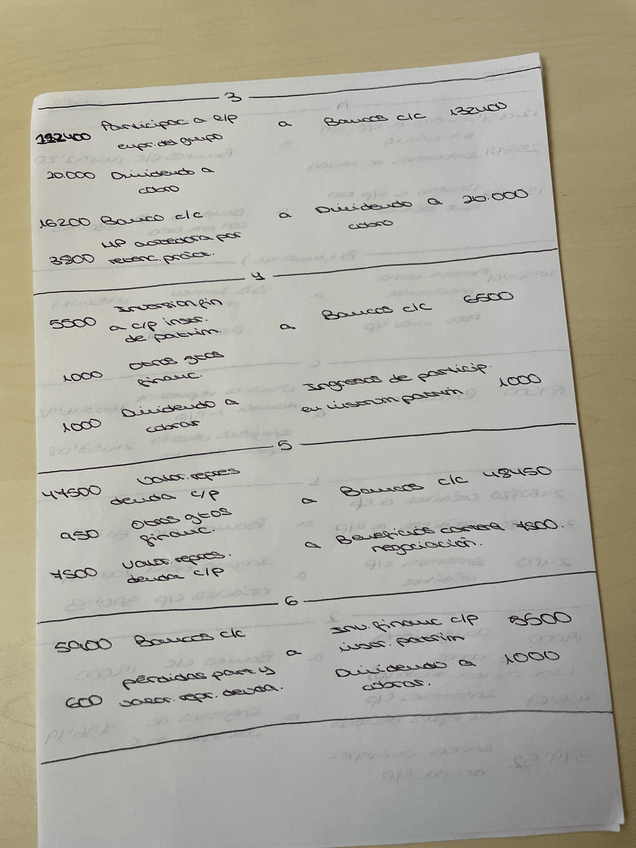 3
112400 Particip a l/p a Bancos c/c 132400
empr. del grupo
20.000 Dividendo a
cobro
16200 Banco c/c a Dividendo a 20.000
cobro
3800 HP acreedora por
retenc. práct.
4
5500 Inversion fin
a c/p instr. a Bancos c/c 6500
de patrim.
1000 Otros gtos
financ.
1000 Dividendo a Ingresos de particip.
cobrar en instrum patrim 1000
5
47500 Valor. repres
deuda c/p a Bancos c/c 48450
950 Otros gtos
financ.
7500 Valor. repres. a Beneficios cartera 7500.
deuda c/p negociación.
6
5900 Bancos c/c Inv. financ c/p 5500
a instr. patrim
600 pérdidas part. y Dividendo a 1000
valor. repr. deuda. cobrar.